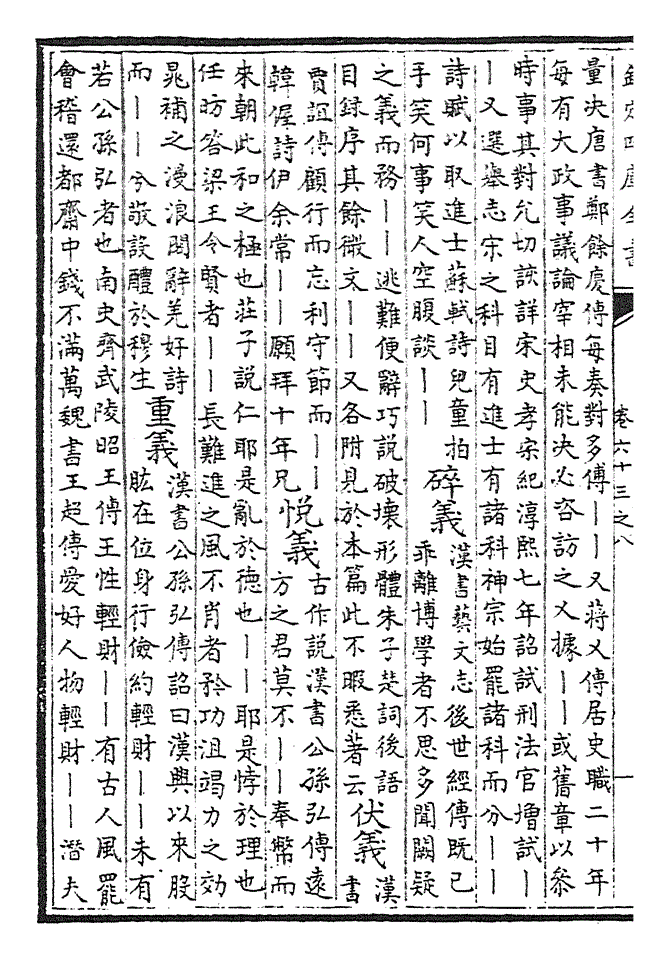 欽定四庫全書
卷六十三之八
量决唐書鄭餘慶傳每奏對多傅——又蔣乂傳居史職二十年
每有大政事議論宰相未能决必咨訪之乂據——或舊章以參
時事其對允切該詳宋史孝宗紀淳熙七年詔試刑法官増試—
—又選舉志宋之科目有進士有諸科神宗始罷諸科而分——
詩賦以取進士蘇軾詩兒童拍
手笑何事笑人空腹談——
碎義
漢書藝文志後世經傳既已
乖離博學者不思多聞闕疑
之義而務——逃難便辭巧說破壞形體朱子楚詞後語
目録序其餘微文——又各附見於本篇此不暇悉著云
伏義
漢
書
賈誼傳顧行而忘利守節而——
韓偓詩伊余常——願拜十年兄
悅義
古作說漢書公孫弘傳遠
方之君莫不——奉幣而
來朝此和之極也莊子說仁耶是亂於德也——耶是悖於理也
任昉答梁王令賢者——長難進之風不肖者矜功沮竭力之効
晁補之漫浪閣辭羌好詩
而——兮敬設醴於穆生
重義
漢書公孫弘傳詔曰漢興以來股
肱在位身行儉約輕財——未有
若公孫弘者也南史齊武陵昭王傳王性輕財——有古人風罷
會稽還都齋中錢不滿萬魏書王超傳愛好人物輕財——潛夫